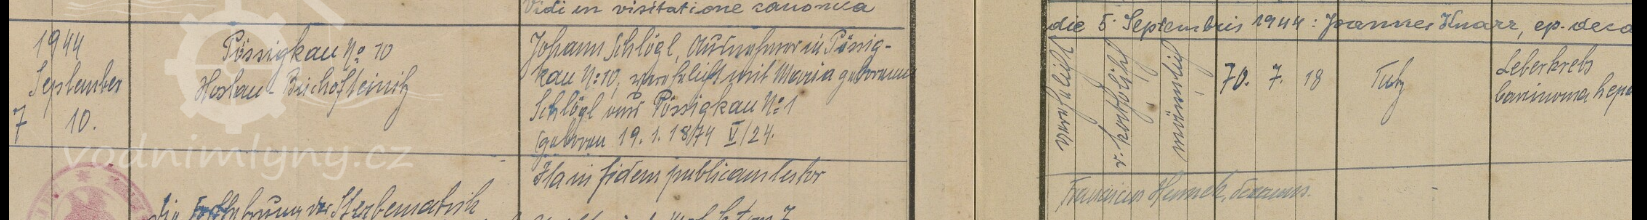 Vidi in visitatione canonica
die 5. Septembris 1944: Joannes Knarr, ep. deca
1944
September
7 10.
Pössigkau No 10
Hostau Bischofteinitz
Johann Schlögl, Ausnehmer in Pössig-
kau No 10, verehelicht mit Maria geborenen
Schlögl aus Pössigkau No 1
geboren 19. 1. 1874 V/24.
verehelicht
r. katholisch
männlich
70. 7. 18
Leberkrebs
Carcinoma hepa
Ita in fidem publicam testor
Franciscus
die Fortsetzung der Sterbematrik
vodnimlyny.cz